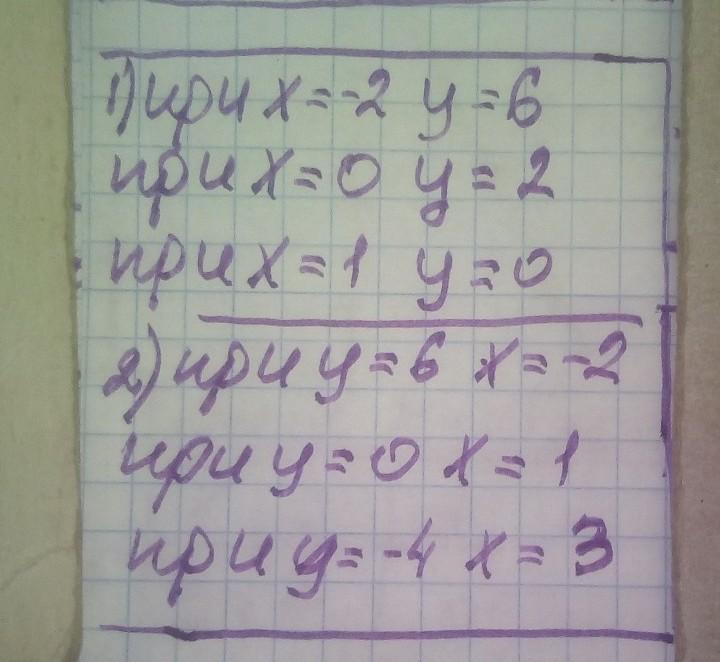 1) при x=-2 y=6
при x=0 y=2
при x=1 y=0
2) при y=6 x=-2
при y=0 x=1
при y=-4 x=3